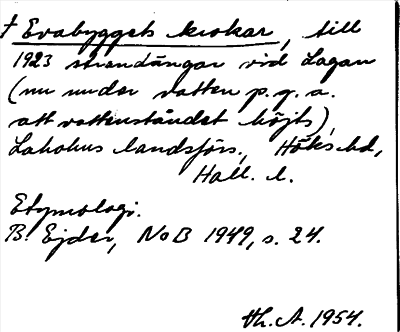 † Evabyggets krokar, till
1923 strandängar vid Lagan
(nu under vatten p.g.a.
att vattenståndet höjts),
Laholms landsförs., Höks hd,
Hall. l.
Etymologi.
B. Ejder, NoB 1949, s. 24.
Th. A. 1954.